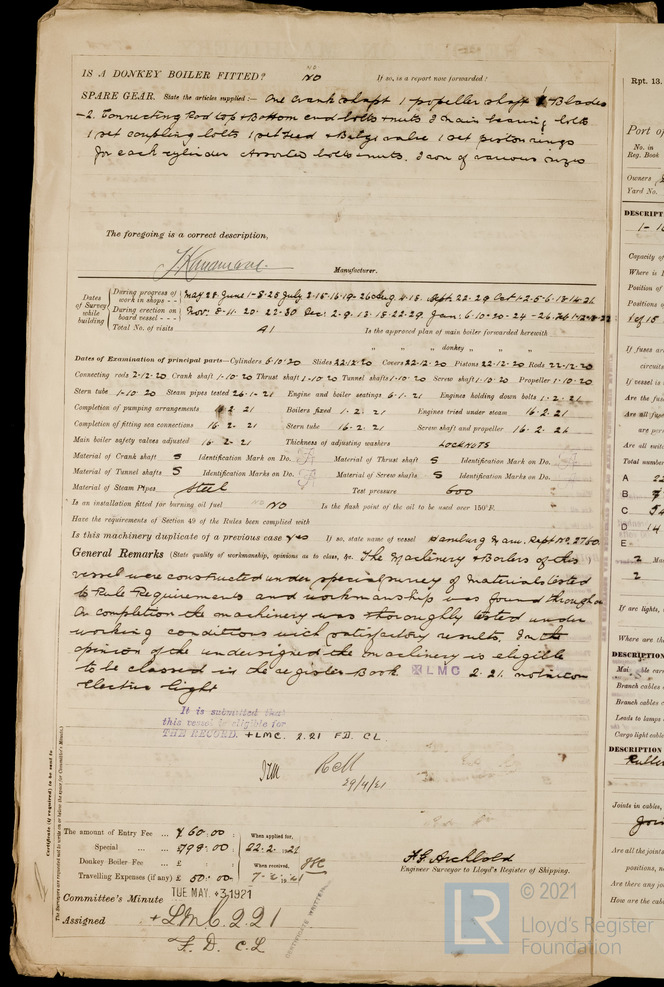 IS A DONKEY BOILER FITTED? NO If so, is a report now forwarded?
SPARE GEAR. State the articles supplied:— One crank shaft 1 propeller shaft 4 Blades
2 Connecting Rod top & Bottom end bolts & nuts 2 main bearing bolts
1 set coupling bolts 1 set feed & Bilge valve 1 set piston rings
for each cylinder Assorted bolts & nuts. Iron of various sizes
The foregoing is a correct description,
Manufacturer.
Dates of Survey while building
During progress of work in shops - - May 28. June 1-8-25 July 2-15-16-19-26 Aug 4-18. Sept. 22-29 Oct 1-2-5-6-18-14-21
During erection on board vessel - - - Nov: 8-11-20-22-30 Dec: 2-9-13-18-22-29 Jan: 6-10-20-24-26
Total No. of visits 41
Is the approved plan of main boiler forwarded herewith
" " " donkey " "
Dates of Examination of principal parts—Cylinders 6.10.20 Slides 22.12.20 Covers 22.12.20 Pistons 22.12.20 Rods 22.12.20
Connecting rods 2.12.20 Crank shaft 1.10.20 Thrust shaft 1.10.20 Tunnel shafts 1.10.20 Screw shaft 1.10.20 Propeller 1.10.20
Stern tube 1.10.20 Steam pipes tested 26.1.21 Engine and boiler seatings 6.1.21 Engines holding down bolts 1.2.21
Completion of pumping arrangements 16.2.21 Boilers fixed 1.2.21 Engines tried under steam 16.2.21
Completion of fitting sea connections 16.2.21 Stern tube 16.2.21 Screw shaft and propeller 16.2.21
Main boiler safety valves adjusted 16.2.21 Thickness of adjusting washers LOCKNUTS
Material of Crank shaft S Identification Mark on Do. Material of Thrust shaft S Identification Mark on Do.
Material of Tunnel shafts S Identification Marks on Do. Material of Screw shafts S Identification Marks on Do.
Material of Steam Pipes Steel Test pressure 600
Is an installation fitted for burning oil fuel NO Is the flash point of the oil to be used over 150°F.
Have the requirements of Section 49 of the Rules been complied with
Is this machinery duplicate of a previous case yes If so, state name of vessel Hamburg Maru. Rept No. 2760
General Remarks (State quality of workmanship, opinions as to class, &c. The Machinery & Boilers of this
vessel were constructed under special survey of materials tested
to Rule Requirements and workmanship was found throughout
On completion the machinery was thoroughly tested under
working conditions with satisfactory results, In the
opinion of the undersigned the machinery is eligible
to be classed in the register Book +LMC 2.21 notation
Electric light
It is submitted that
this vessel is eligible for
THE RECORD. +LMC. 2.21 F.D. C.L.
29/4/21
The amount of Entry Fee ... ¥ 60.00
When applied for, 22.2.1921
Special ... ... ¥ 798.00
Donkey Boiler Fee ... £
When received,
Travelling Expenses (if any) £ 50.00
F. G. Archbold
Engineer Surveyor to Lloyd's Register of Shipping.
Committee's Minute TUE. MAY. 3 1921
Assigned +LMC. 2.21
F. D. C.L
CERTIFICATE WRITTEN
Certificate (if required) to be sent to
Rpt. 13.
Port of
No. in
Reg. Book
Owners
Yard No.
DESCRIPT
Capacity of
Where is
Position of
Positions
If fuses ar
circuits
If vessel is
Are the fus
Are all fuse
are per
Are all swit
Total number
A 22
B 7
C
D 14
E
2
2
If arc lights,
Where are th
DESCRIPTION
Branch cables
Branch cables c
Leads to lamps
Cargo light cable
DESCRIPTION
Joints in cables,
Are all the joints
positions,
Are there any jo
How are the cab
LR © 2021
Lloyd's Register
Foundation